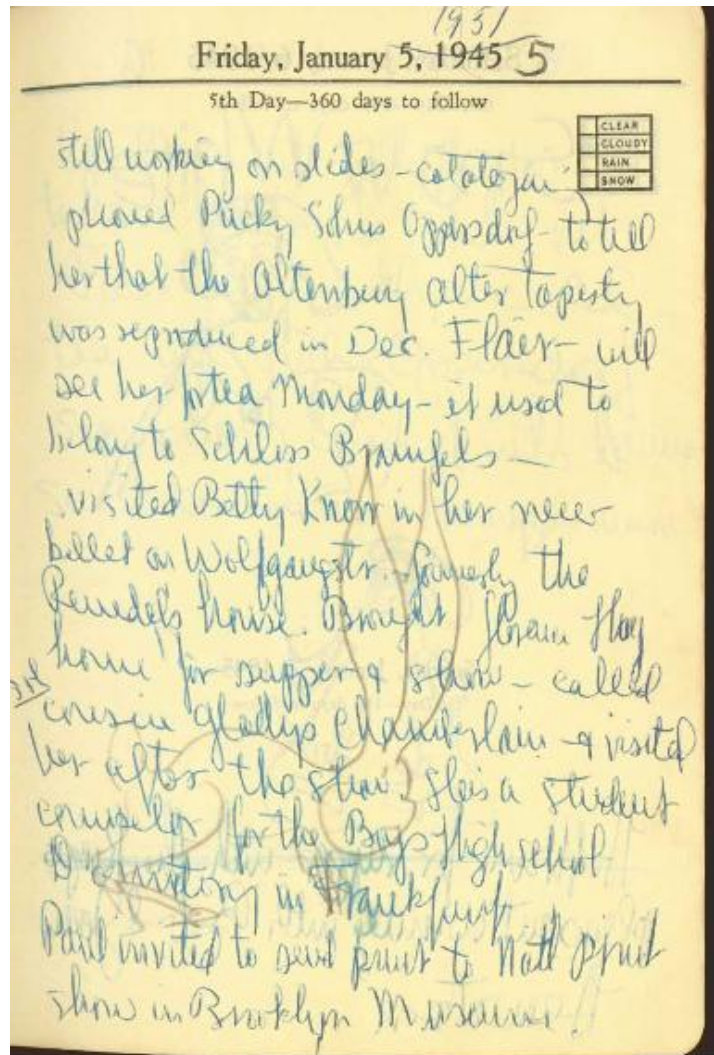 1951
Friday, January 5, 1945 5
5th Day—360 days to follow
CLEAR
CLOUDY
RAIN
SNOW
still working on slides - cataloguing
phoned Pucky Solms Oppersdorf - to tell
her that the Altenburg alter tapesty
was reproduced in Dec. Flair - will
see her for tea Monday - it used to
belong to Schloss Braunfels -
visited Betty Knorr in her new
billet on Wolfgangstr. formerly the
house. Brought
home for supper & show - called
cousin Gladys Chamberlain - & visited
her after the show. She is a student
counselor for the Boys High school
Dormitory in Frankfurt
Paul invited to send print to Natl Print
show in Brooklyn Museum.